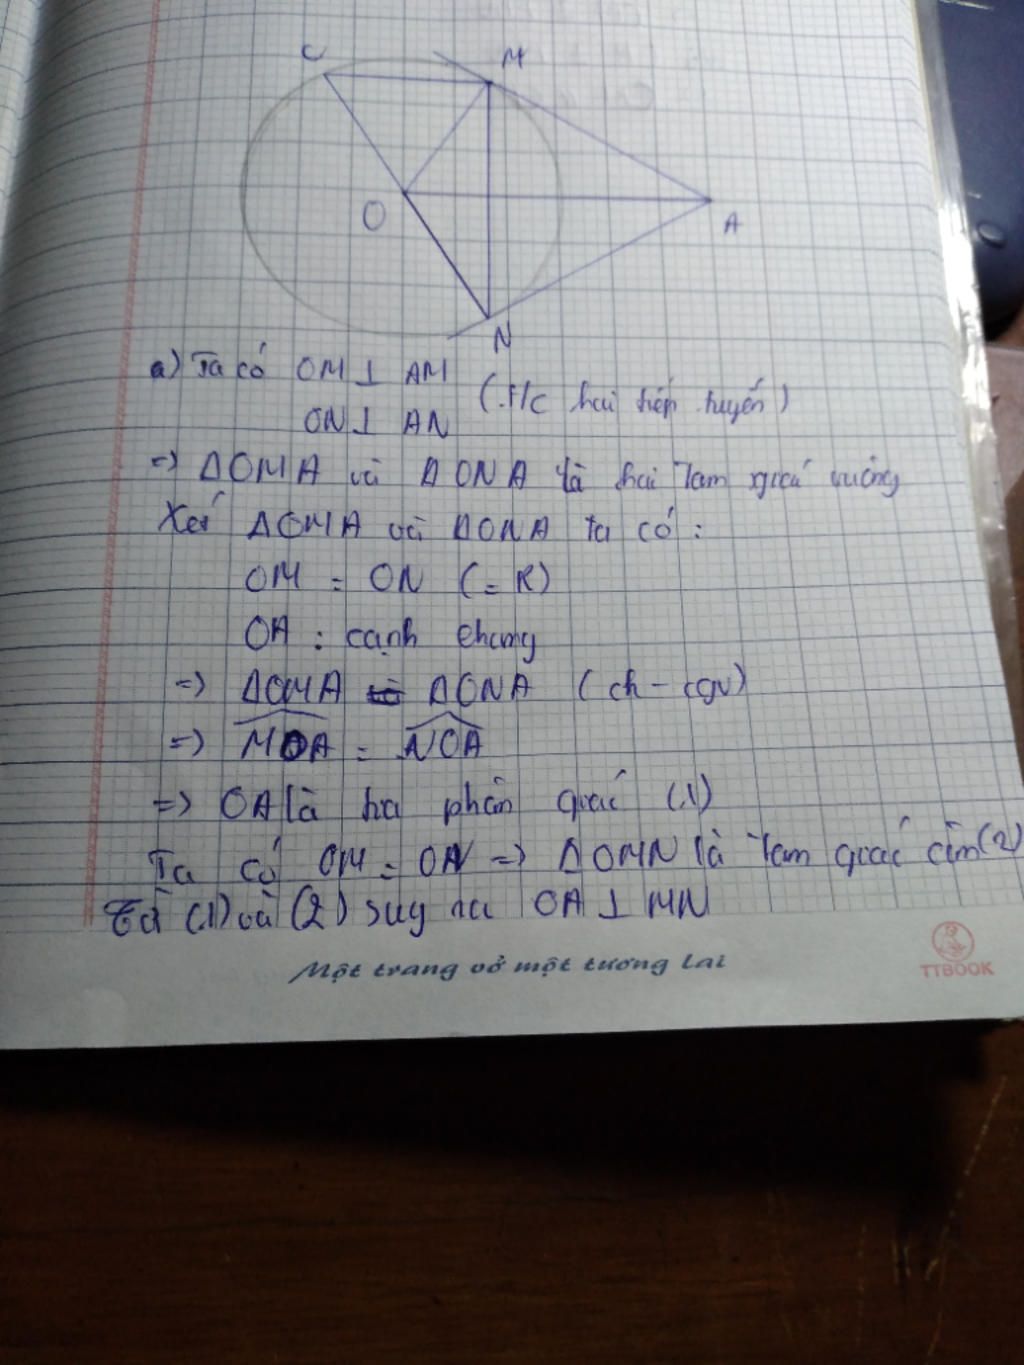 C
M
O
A
N
a) Ta có OM ⊥ AM
ON ⊥ AN
(t/c hai tiếp tuyến)
=> ΔOMA và ΔONA là hai tam giác vuông
Xét ΔOMA và ΔONA ta có:
OM = ON (= R)
OA : cạnh chung
=> ΔOMA = ΔONA (ch - cgv)
=> MOA = NOA
=> OA là tia phân giác (1)
Ta có OM = ON => ΔOMN là tam giác cân (2)
Từ (1) và (2) suy ra OA ⊥ MN
Một trang vở một tương lai
TTBOOK